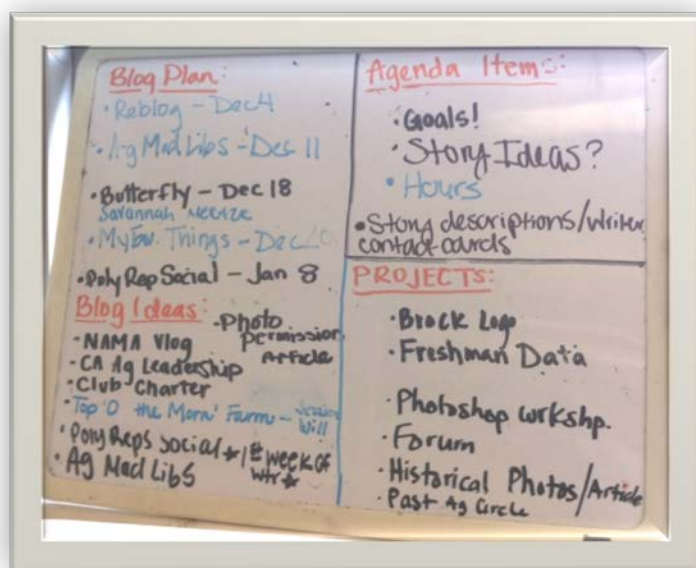 Blog Plan:
• Reblog - Dec 4
• Ag Mad Libs - Dec 11
• Butterfly - Dec 18
Savannah
• My fav. Things - Dec
• Poly Rep Social - Jan 8
Blog Ideas:
- Photo permission Article
- NAMA Vlog
- CA Ag Leadership
- Club Charter
- Top 'O the Morn' Farm - Will
• Poly Reps Social * 1st week of wtr *
• Ag Mad Libs
Agenda Items:
• Goals!
• Story Ideas?
• Hours
• Story descriptions/writer
contact cards
PROJECTS:
• Brock Logo
• Freshman Data
• Photoshop wrkshp.
• Forum
• Historical Photos/Article
• Past Ag Circle